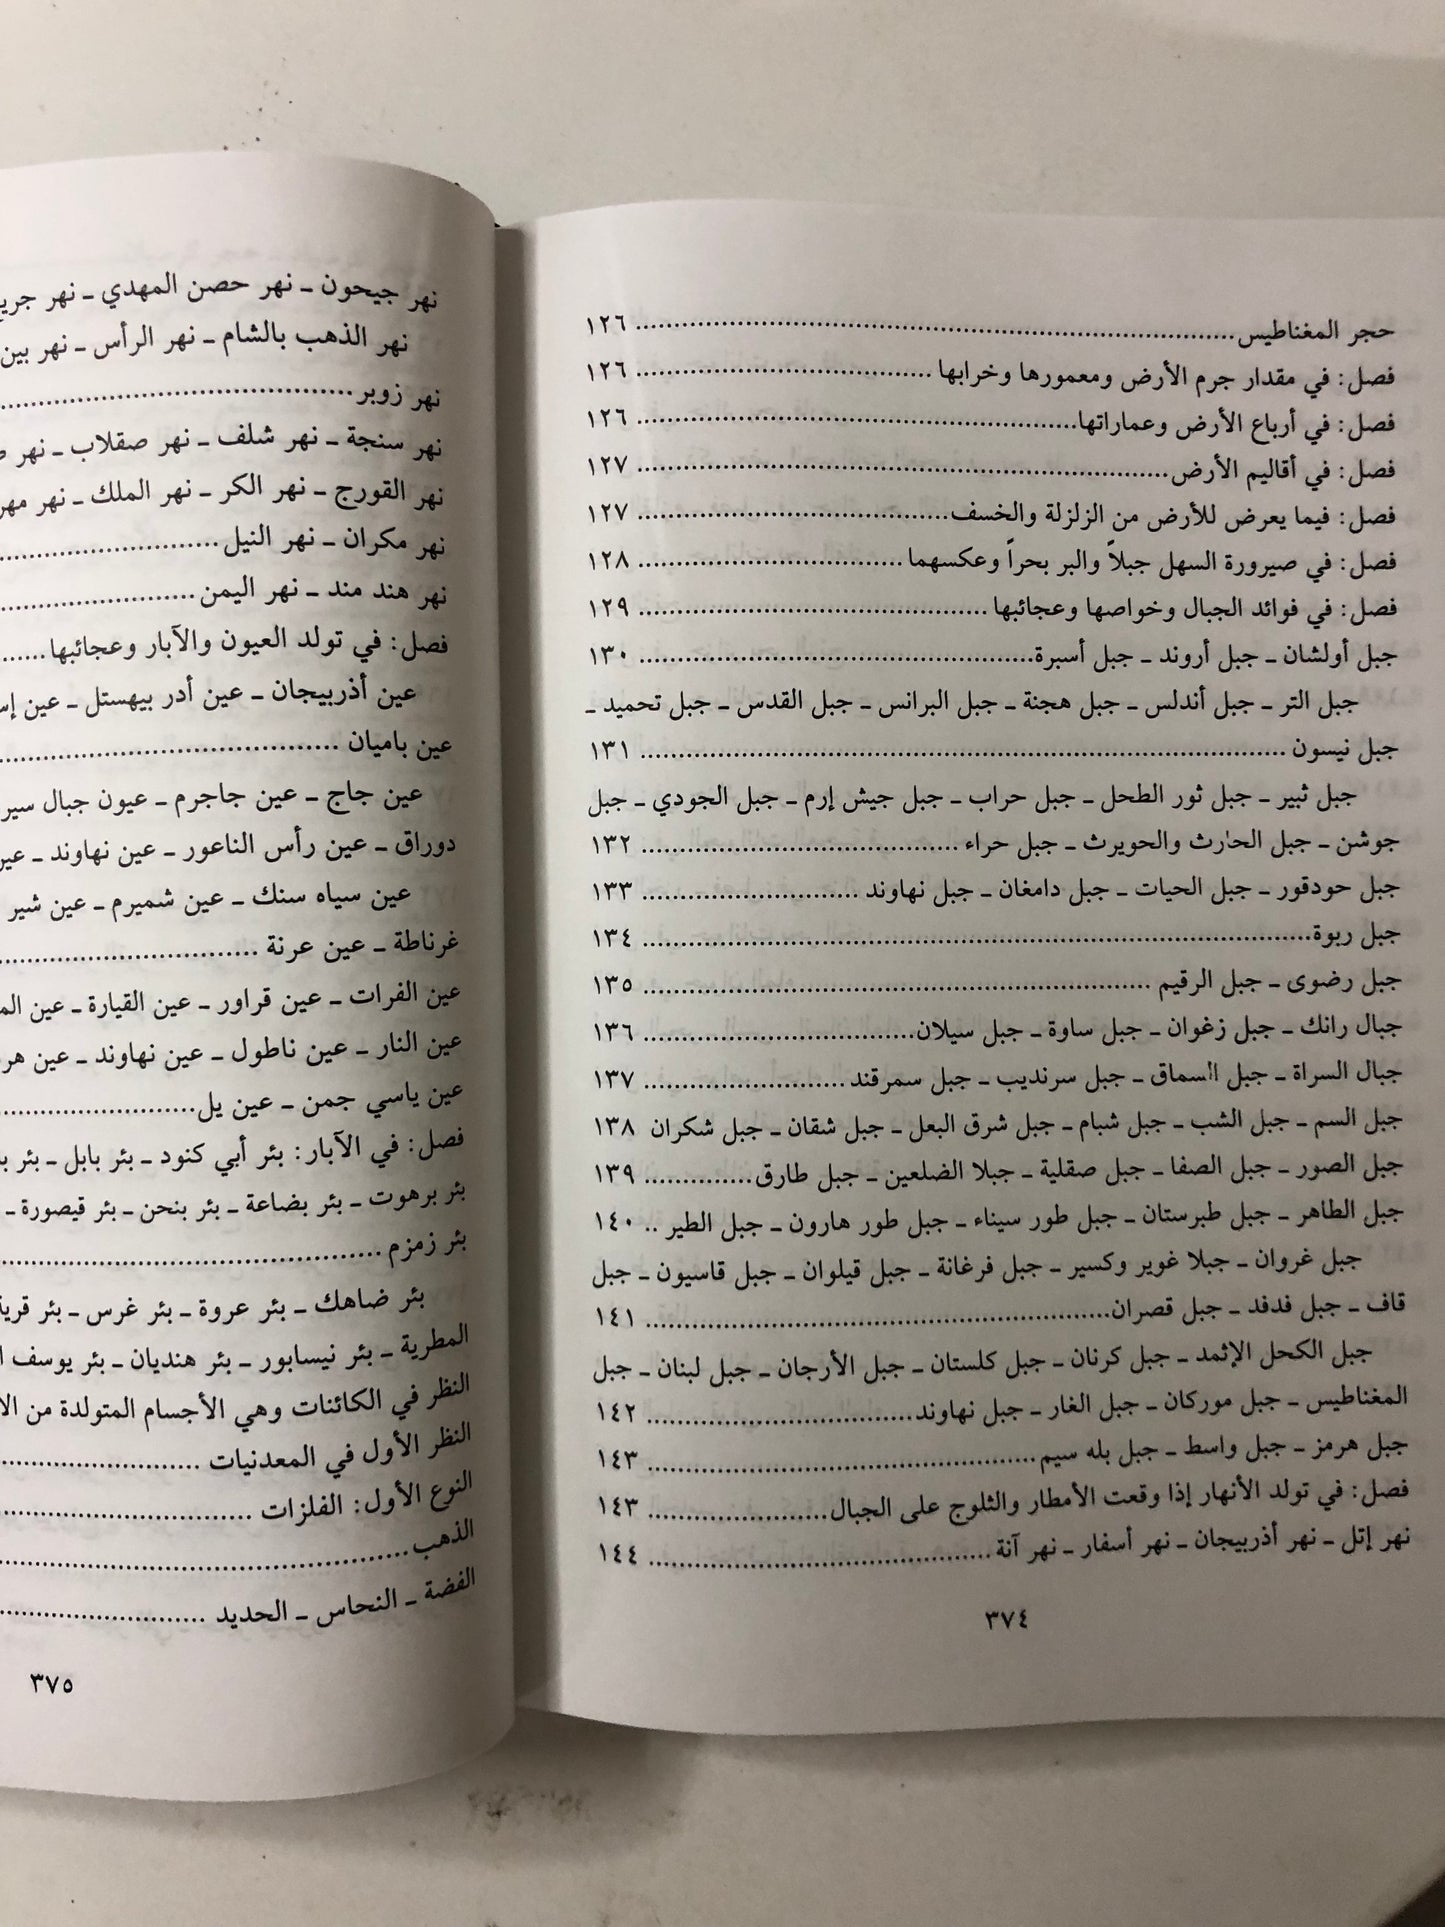 حجر المغناطيس ........ ١٢٦
فصل: في مقدار جرم الأرض ومعمورها وخرابها ........ ١٢٦
فصل: في أرباع الأرض وعماراتها ........ ١٢٦
فصل: في أقاليم الأرض ........ ١٢٧
فصل: فيما يعرض للأرض من الزلزلة والخسف ........ ١٢٧
فصل: في صيرورة السهل جبلاً والبر بحراً وعكسهما ........ ١٢٨
فصل: في فوائد الجبال وخواصها وعجائبها ........ ١٢٩
جبل أولشان ـ جبل أروند ـ جبل أسبرة ........ ١٣٠
جبل التر ـ جبل أندلس ـ جبل هجنة ـ جبل البرانس ـ جبل القدس ـ جبل تحميد ـ
جبل نيسون ........ ١٣١
جبل ثبير ـ جبل ثور الطحل ـ جبل حراب ـ جبل جيش إرم ـ جبل الجودي ـ جبل
جوشن ـ جبل الحارث والحويرث ـ جبل حراء ........ ١٣٢
جبل حودقور ـ جبل الحيات ـ جبل دامغان ـ جبل نهاوند ........ ١٣٣
جبل ربوة ........ ١٣٤
جبل رضوى ـ جبل الرقيم ........ ١٣٥
جبال رانك ـ جبل زغوان ـ جبل ساوة ـ جبل سيلان ........ ١٣٦
جبال السراة ـ جبل السماق ـ جبل سرنديب ـ جبل سمرقند ........ ١٣٧
جبل السم ـ جبل الشب ـ جبل شبام ـ جبل شرق البعل ـ جبل شقان ـ جبل شكران ١٣٨
جبل الصور ـ جبل الصفا ـ جبل صقلية ـ جبلا الضلعين ـ جبل طارق ........ ١٣٩
جبل الطاهر ـ جبل طبرستان ـ جبل طور سيناء ـ جبل طور هارون ـ جبل الطير .. ١٤٠
جبل غروان ـ جبلا غوير وكسير ـ جبل فرغانة ـ جبل قيلوان ـ جبل قاسيون ـ جبل
قاف ـ جبل فدفد ـ جبل قصران ........ ١٤١
جبل الكحل الإثمد ـ جبل كرنان ـ جبل كلستان ـ جبل الأرجان ـ جبل لبنان ـ جبل
المغناطيس ـ جبل موركان ـ جبل الغار ـ جبل نهاوند ........ ١٤٢
جبل هرمز ـ جبل واسط ـ جبل بله سيم ........ ١٤٣
فصل: في تولد الأنهار إذا وقعت الأمطار والثلوج على الجبال ........ ١٤٣
نهر إتل ـ نهر أذربيجان ـ نهر أسفار ـ نهر آنة ........ ١٤٤
٣٧٤
نهر جيحون ـ نهر حصن المهدي ـ نهر
نهر الذهب بالشام ـ نهر الرأس ـ نهر بين
نهر زوبر ........
نهر سنجة ـ نهر شلف ـ نهر صقلاب ـ نهر
نهر القورج ـ نهر الكر ـ نهر الملك ـ نهر
نهر مكران ـ نهر النيل ........
نهر هند مند ـ نهر اليمن ........
فصل: في تولد العيون والآبار وعجائبها ........
عين أذربيجان ـ عين أدر بيهستل ـ عين
عين باميان ........
عين جاج ـ عين جاجرم ـ عيون جبال سير
دوراق ـ عين رأس الناعور ـ عين نهاوند ـ
عين سياه سنك ـ عين شميرم ـ عين شير
غرناطة ـ عين عرنة ........
عين الفرات ـ عين قراور ـ عين القيارة ـ عين
عين النار ـ عين ناطول ـ عين نهاوند ـ عين
عين ياسي جمن ـ عين يل ........
فصل: في الآبار: بئر أبي كنود ـ بئر بابل ـ بئر
بئر برهوت ـ بئر بضاعة ـ بئر بنحن ـ بئر قيصورة ـ
بئر زمزم ........
بئر ضاهك ـ بئر عروة ـ بئر غرس ـ بئر
المطرية ـ بئر نيسابور ـ بئر هنديان ـ بئر يوسف
النظر في الكائنات وهي الأجسام المتولدة من
النظر الأول في المعدنيات ........
النوع الأول: الفلزات ........
الذهب ........
الفضة ـ النحاس ـ الحديد ........
٣٧٥